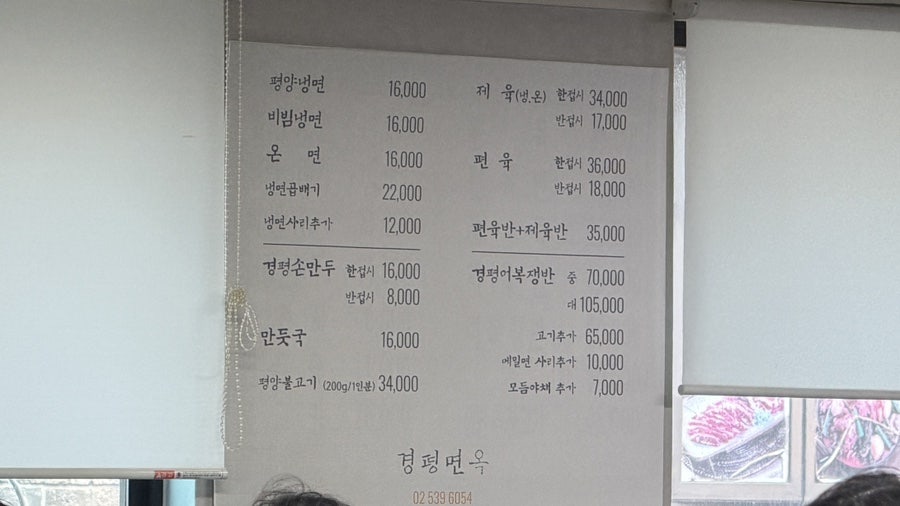 평양냉면 16,000
비빔냉면 16,000
온 면 16,000
냉면곱배기 22,000
냉면사리추가 12,000
경평손만두 한접시 16,000
반접시 8,000
만둣국 16,000
평양불고기 (200g/1인분) 34,000
제 육(냉,온) 한접시 34,000
반접시 17,000
편 육 한접시 36,000
반접시 18,000
편육반+제육반 35,000
경평어복쟁반 중 70,000
대 105,000
고기추가 65,000
메밀면 사리추가 10,000
모듬야채 추가 7,000
경평면옥
02 539 6054